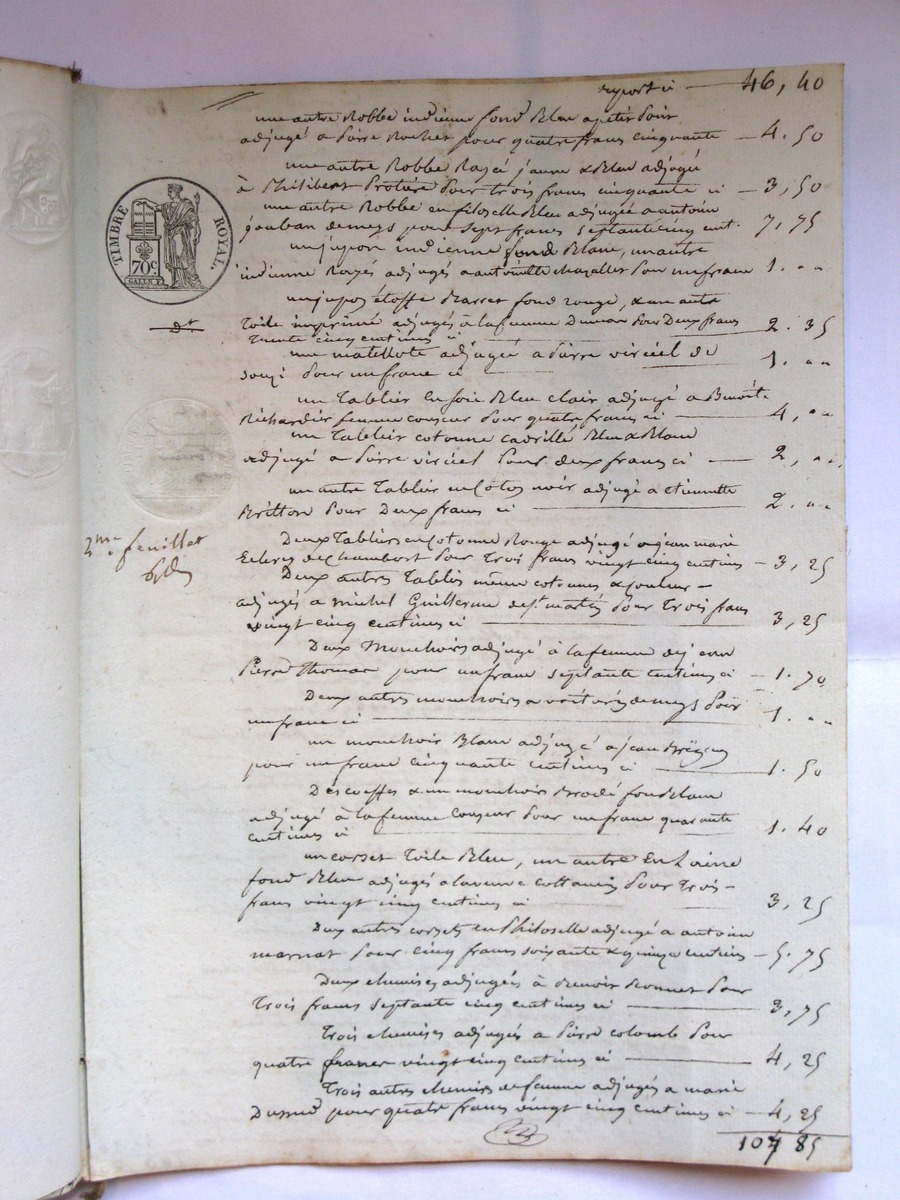 report ci — 46,40
une autre Robbe indienne fond Bleu a petit Pois
adjugé a Pierre Rocher pour quatre francs cinquante — 4.50
une autre Robbe Rayé jaune & Bleu adjugée
à Philibert Protière Pour trois francs cinquante ci — 3,50
une autre Robbe en filoselle Bleu adjugée a antoine
jouban demeys pour sept francs septantecinq cent. 7,75
un jupon indienne fond Blanc, un autre
indienne Rayés adjugés a antoinette chavallet Pour un franc 1. ..
un jupon étoffe fond rouge, & un autre
Toile imprimé adjugés à la femme Pour Deux francs
Trente cinq centimes ci — 2.35
une matellote adjugée a Pierre viricel de
souzi Pour un franc ci — 1. ..
un Tablier En soie Bleu clair adjugé a Benoite
Richardier femme couseur Pour quatre francs ci — 4, ..
un Tablier cotonne cadrillé Bleu & Blanc
adjugé a Pierre viricel Pour deux francs ci — 2, ..
un autre Tablier en coton noir adjugé a etiennette
Pour Deux francs ci — 2. ..
Deux Tabliers en Cotonne Rouge adjugé a jean marie
de Chambost Pour Trois francs vingt cinq centimes — 3,25
Deux autres Tabliers même cotonnes & Couleur —
adjugés a michel Guillerme de St martin Pour Trois francs
vingt cinq centimes ci — 3,25
Deux Mouchoirs adjugé à la femme de jean
Pierre Thomas pour un franc septante centimes ci — 1.70
Deux autres mouchoirs a demeys Pour
un franc ci — 1. ..
un mouchoir Blanc adjugé a jean
pour un franc cinquante centimes ci — 1.50
Des coeffes & un mouchoir Brodé fond Blanc
adjugé à la femme Couseur Pour un franc quarante
centimes ci — 1.40
un corset Toile Bleu, un autre En Laine
fond Bleu adjugés a la veuve Pour Trois —
francs vingt cinq centimes ci — 3,25
Deux autres corsets en Philoselle adjugé a antoine
marnat Pour cinq francs soixante & quinze centimes — 5.75
Deux chemises adjugées à Benoit Bonnet Pour
Trois francs septante cinq centimes ci — 3,75
Trois chemises adjugés a Pierre colomb Pour
quatre francs vingt cinq centimes ci — 4,25
Trois autres chemises de femme adjugés a marie
pour quatre francs vingt cinq centimes ci — 4,25
104 85
TIMBRE ROYAL.
70c.
Dt
3me feuillet